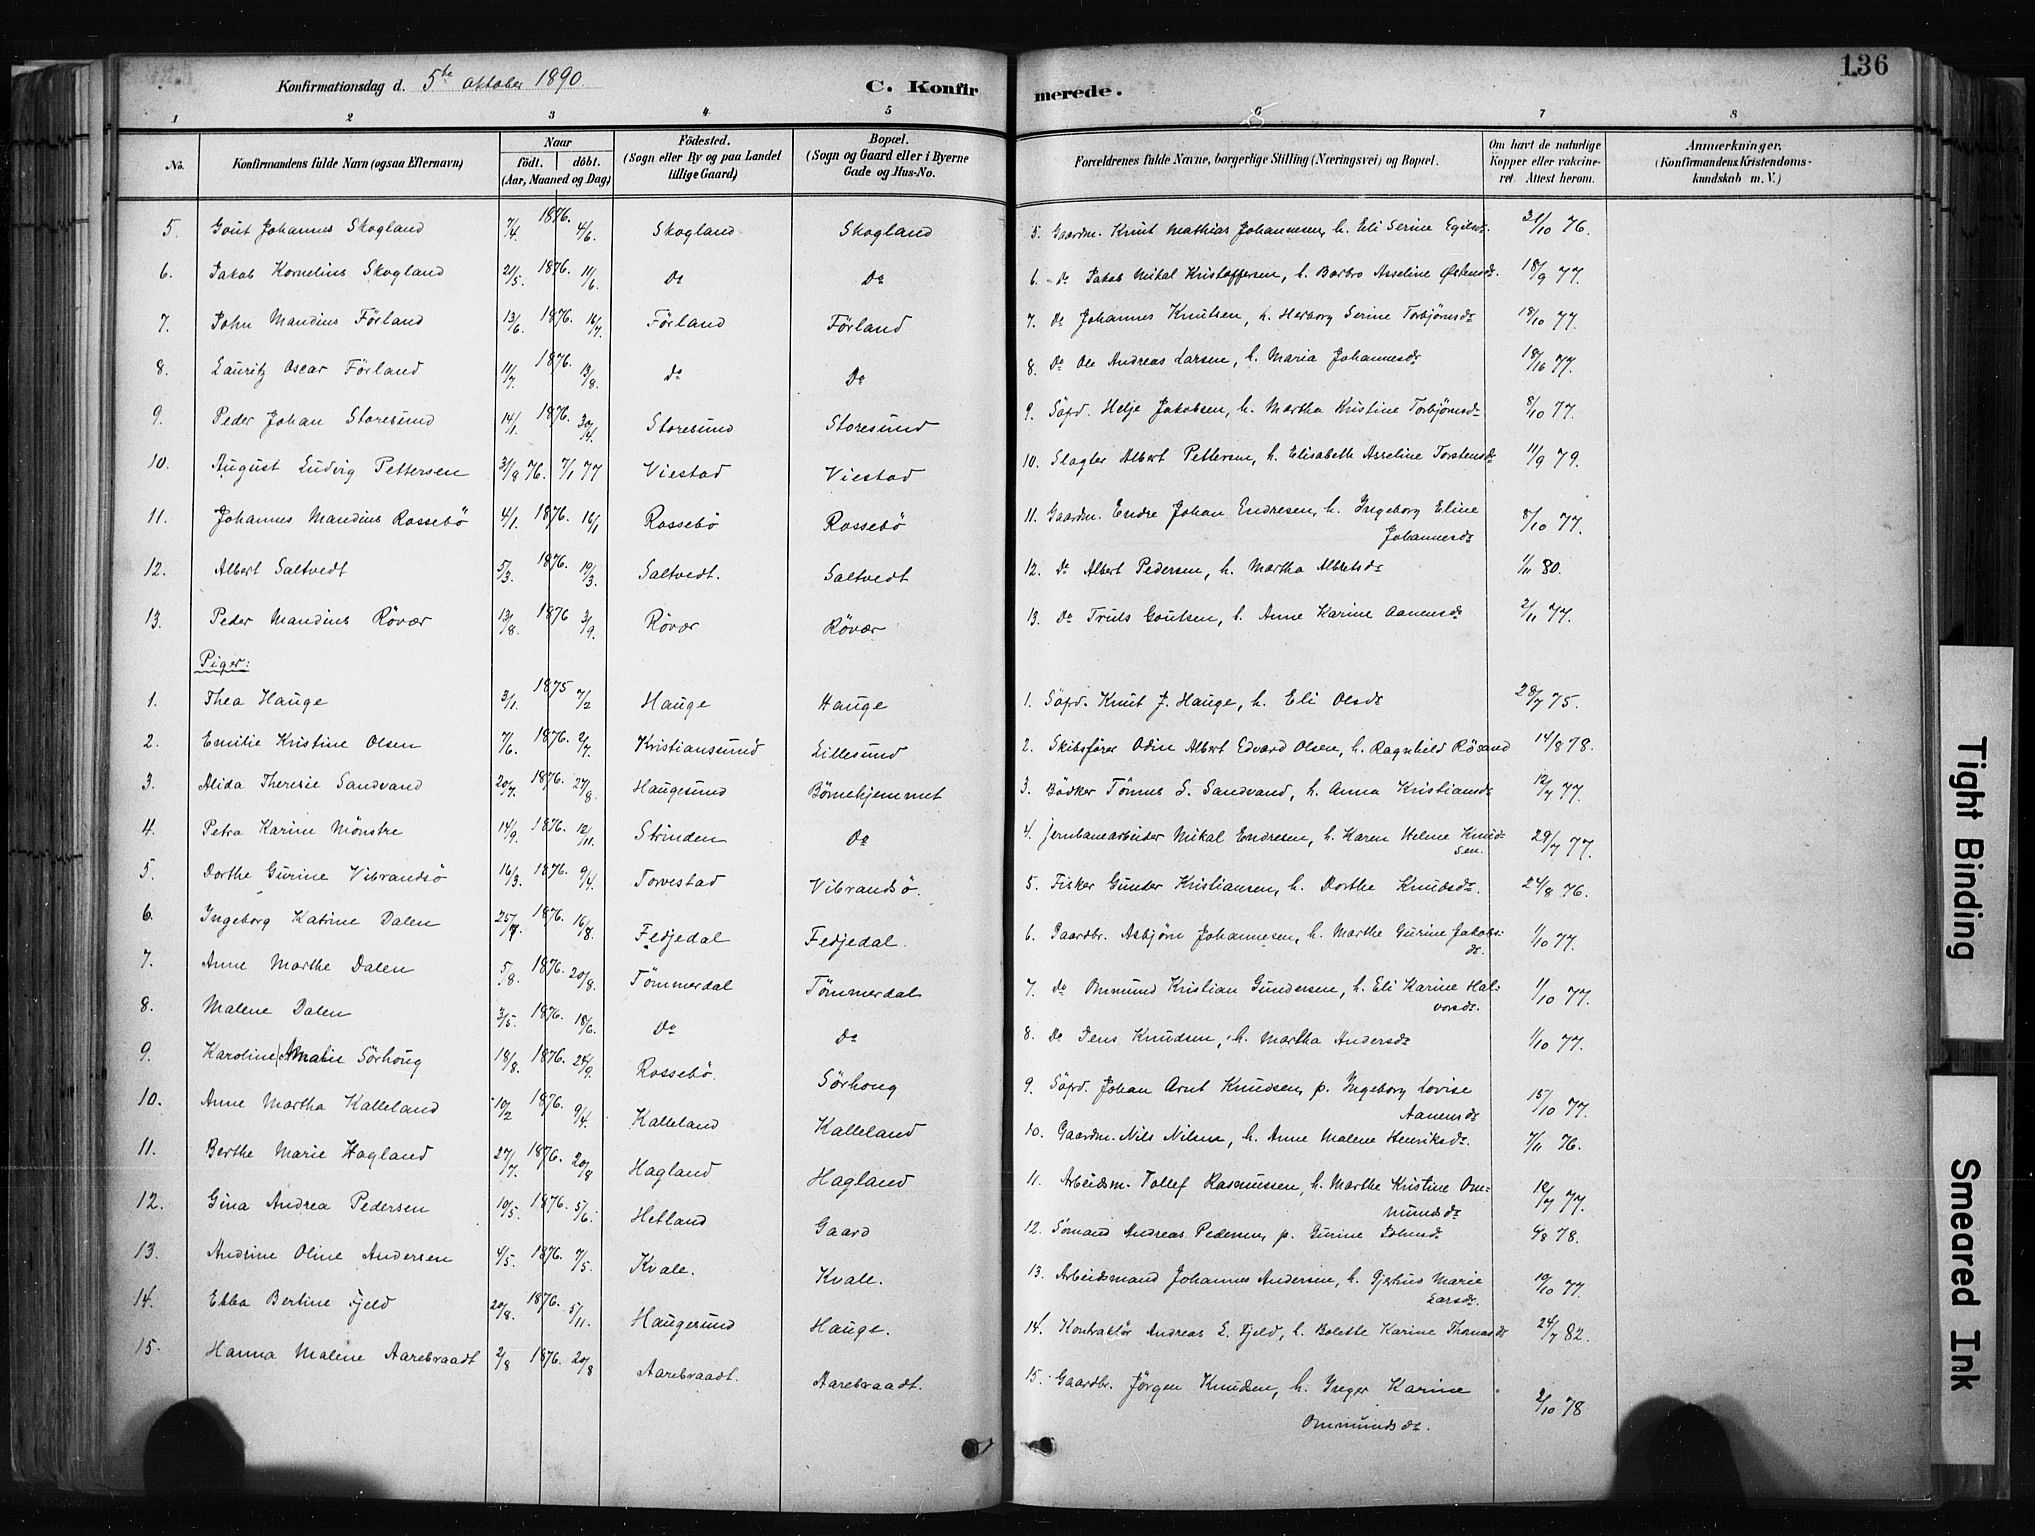 136
Konfirmationsdag d. 5te Oktober 1890. C. Konfirmerede.
1 2 3 4 5 6 7 8
No. Konfirmandens fulde Navn (ogsaa Efternavn) Naar födt. döbt. (Aar, Maaned og Dag) Födested. (Sogn eller By og paa Landet tillige Gaard) Bopæl. (Sogn og Gaard eller i Byerne Gade og Hus-No. Forældrenes fulde Navne, borgerlige Stilling (Næringsvei) og Bopæl. Om havt de naturlige Kopper eller vakcineret. Attest herom. Anmærkninger. (Konfirmandens Kristendomskundskab m. V.)
5. Gout Johannes Skogland 7/4. 1876. 4/6. Skogland Skogland 5. Gaardm. Knut Mathias Johannesen, h. Eli Serine Egilsdr. 31/10 76.
6. Jakob Kornelius Skogland 21/5. 1876. 11/6. Do Do 6. Do Jakob Mikal Kristoffersen, h. Barbro Asseline Östensdr. 18/9 77.
7. John Mandius Förland 13/6. 1876. 16/7. Förland Förland 7. Do Johannes Knutsen, h. Herborg Serine Torbjörnsdr 18/10 77.
8. Lauritz Oscar Förland 11/7. 1876. 13/8. Do Do 8. Do Ole Andreas Larsen, h. Maria Johannesdr 18/10 77.
9. Peder Johan Storesund 14/1. 1876. 30/4. Storesund Storesund 9. Söfd. Helje Jakobsen, h. Martha Kristine Torbjörnsdr 8/10 77.
10. August Ludvig Pettersen 3/8 76. 7/1 77 Viestad Viestad 10. Slagter Albert Pettersen, h. Elisabeth Asseline Torstensdr 11/9 79.
11. Johannes Mandius Rossebö 4/1. 1876. 16/1 Rossebö Rossebö 11. Gaardm. Endre Johan Endresen, h. Ingeborg Eline Johannesdr 8/10 77.
12. Albert Saltvedt 5/3. 1876. 19/3. Saltvedt. Saltvedt 12. Do Albert Pedersen, h. Martha Albretsdr 1/11 80.
13. Peder Mandius Rövær 13/8. 1876 3/9. Rövær Rövær 13. Do Truls Goutsen, h. Anne Karine Aanensdr 2/11 77.
Piger:
1. Thea Hauge 3/1. 1875 7/2 Hauge Hauge 1. Söfd. Knut J. Hauge, h. Eli Olsdr 28/7 75.
2. Emilie Kristine Olsen 7/6. 1876. 2/7. Kristiansund Lillesund 2. Skibsförer Odin Albert Edvard Olsen, h. Ragnhild Rösand 14/8 78.
3. Alida Theresie Sandvand 20/7. 1876. 27/8. Haugesund Börnehjemmet 3. Bödker Tönnes S. Sandvand, h. Anna Kristiansdr 12/7 77.
4. Petra Karine Mönstre 14/9. 1876. 12/11. Strinden Do 4. Jernbanearbeider Mikal Endresen, h. Karen Helene Knudsen. 29/7 77.
5. Dorthe Gurine Vibrandsö 16/3. 1876. 9/4. Torvestad Vibrandsö. 5. Fisker Gunder Kristiansen, h. Dorthe Knudsdr. 24/8 76.
6. Ingeborg Katrine Dalen 25/7. 1876. 16/8. Fedjedal Fedjedal. 6. Gaardbr. Asbjörn Johannesen, h. Marthe Gurine Jakobsdr. 1/10 77.
7. Anne Marthe Dalen 5/8. 1876. 20/8. Tömmerdal Tömmerdal 7. Do Ommund Kristian Gundersen, h. Eli Karine Halvorsdr. 1/10 77.
8. Malene Dalen 3/5. 1876. 18/6. Do Do 8. Do Jens Knudsen, h. Martha Andersdr 1/10 77.
9. Karoline Amalie Sörhoug 18/8. 1876. 24/9. Rossebö. Sörhoug 9. Söfd. Johan Arnt Knudsen, p. Ingeborg Lovise Aanensdr 15/10 77.
10. Anne Martha Kalleland 10/2 1876. 9/4. Kalleland Kalleland 10. Gaardm. Nils Nilsen, h. Anne Malene Henriksdr. 7/11 76.
11. Berthe Marie Hagland 27/7. 1876. 20/8 Hagland Hagland 11. Arbeidsm. Tollef Rasmussen, h. Marthe Kristine Ommundsdr 12/7 77.
12. Gina Andrea Pedersen 10/5. 1876. 5/6. Hetland Gaard 12. Sömand Andreas Pedersen, p. Gurine Johnsdr 6/8 78.
13. Andrine Oline Andersen 4/5. 1876. 7/5. Kvale. Kvale. 13. Arbeidsmand Johannes Andersen, h. Gjerhus Marie Larsdr. 19/10 77.
14. Ebba Bertine Fjeld 20/8. 1876. 5/11. Haugesund Hauge. 14. Kontraktör Andreas E. Fjeld, h. Bolette Karine Thomasdr 24/7 82.
15. Hanna Malene Aarebraadt 2/8 1876. 20/8 Aarebraadt. Aarebraadt. 15. Gaardbr. Jörgen Knudsen, h. Inger Karine Ommundsdr. 2/10 78
Tight Binding
Smeared Ink